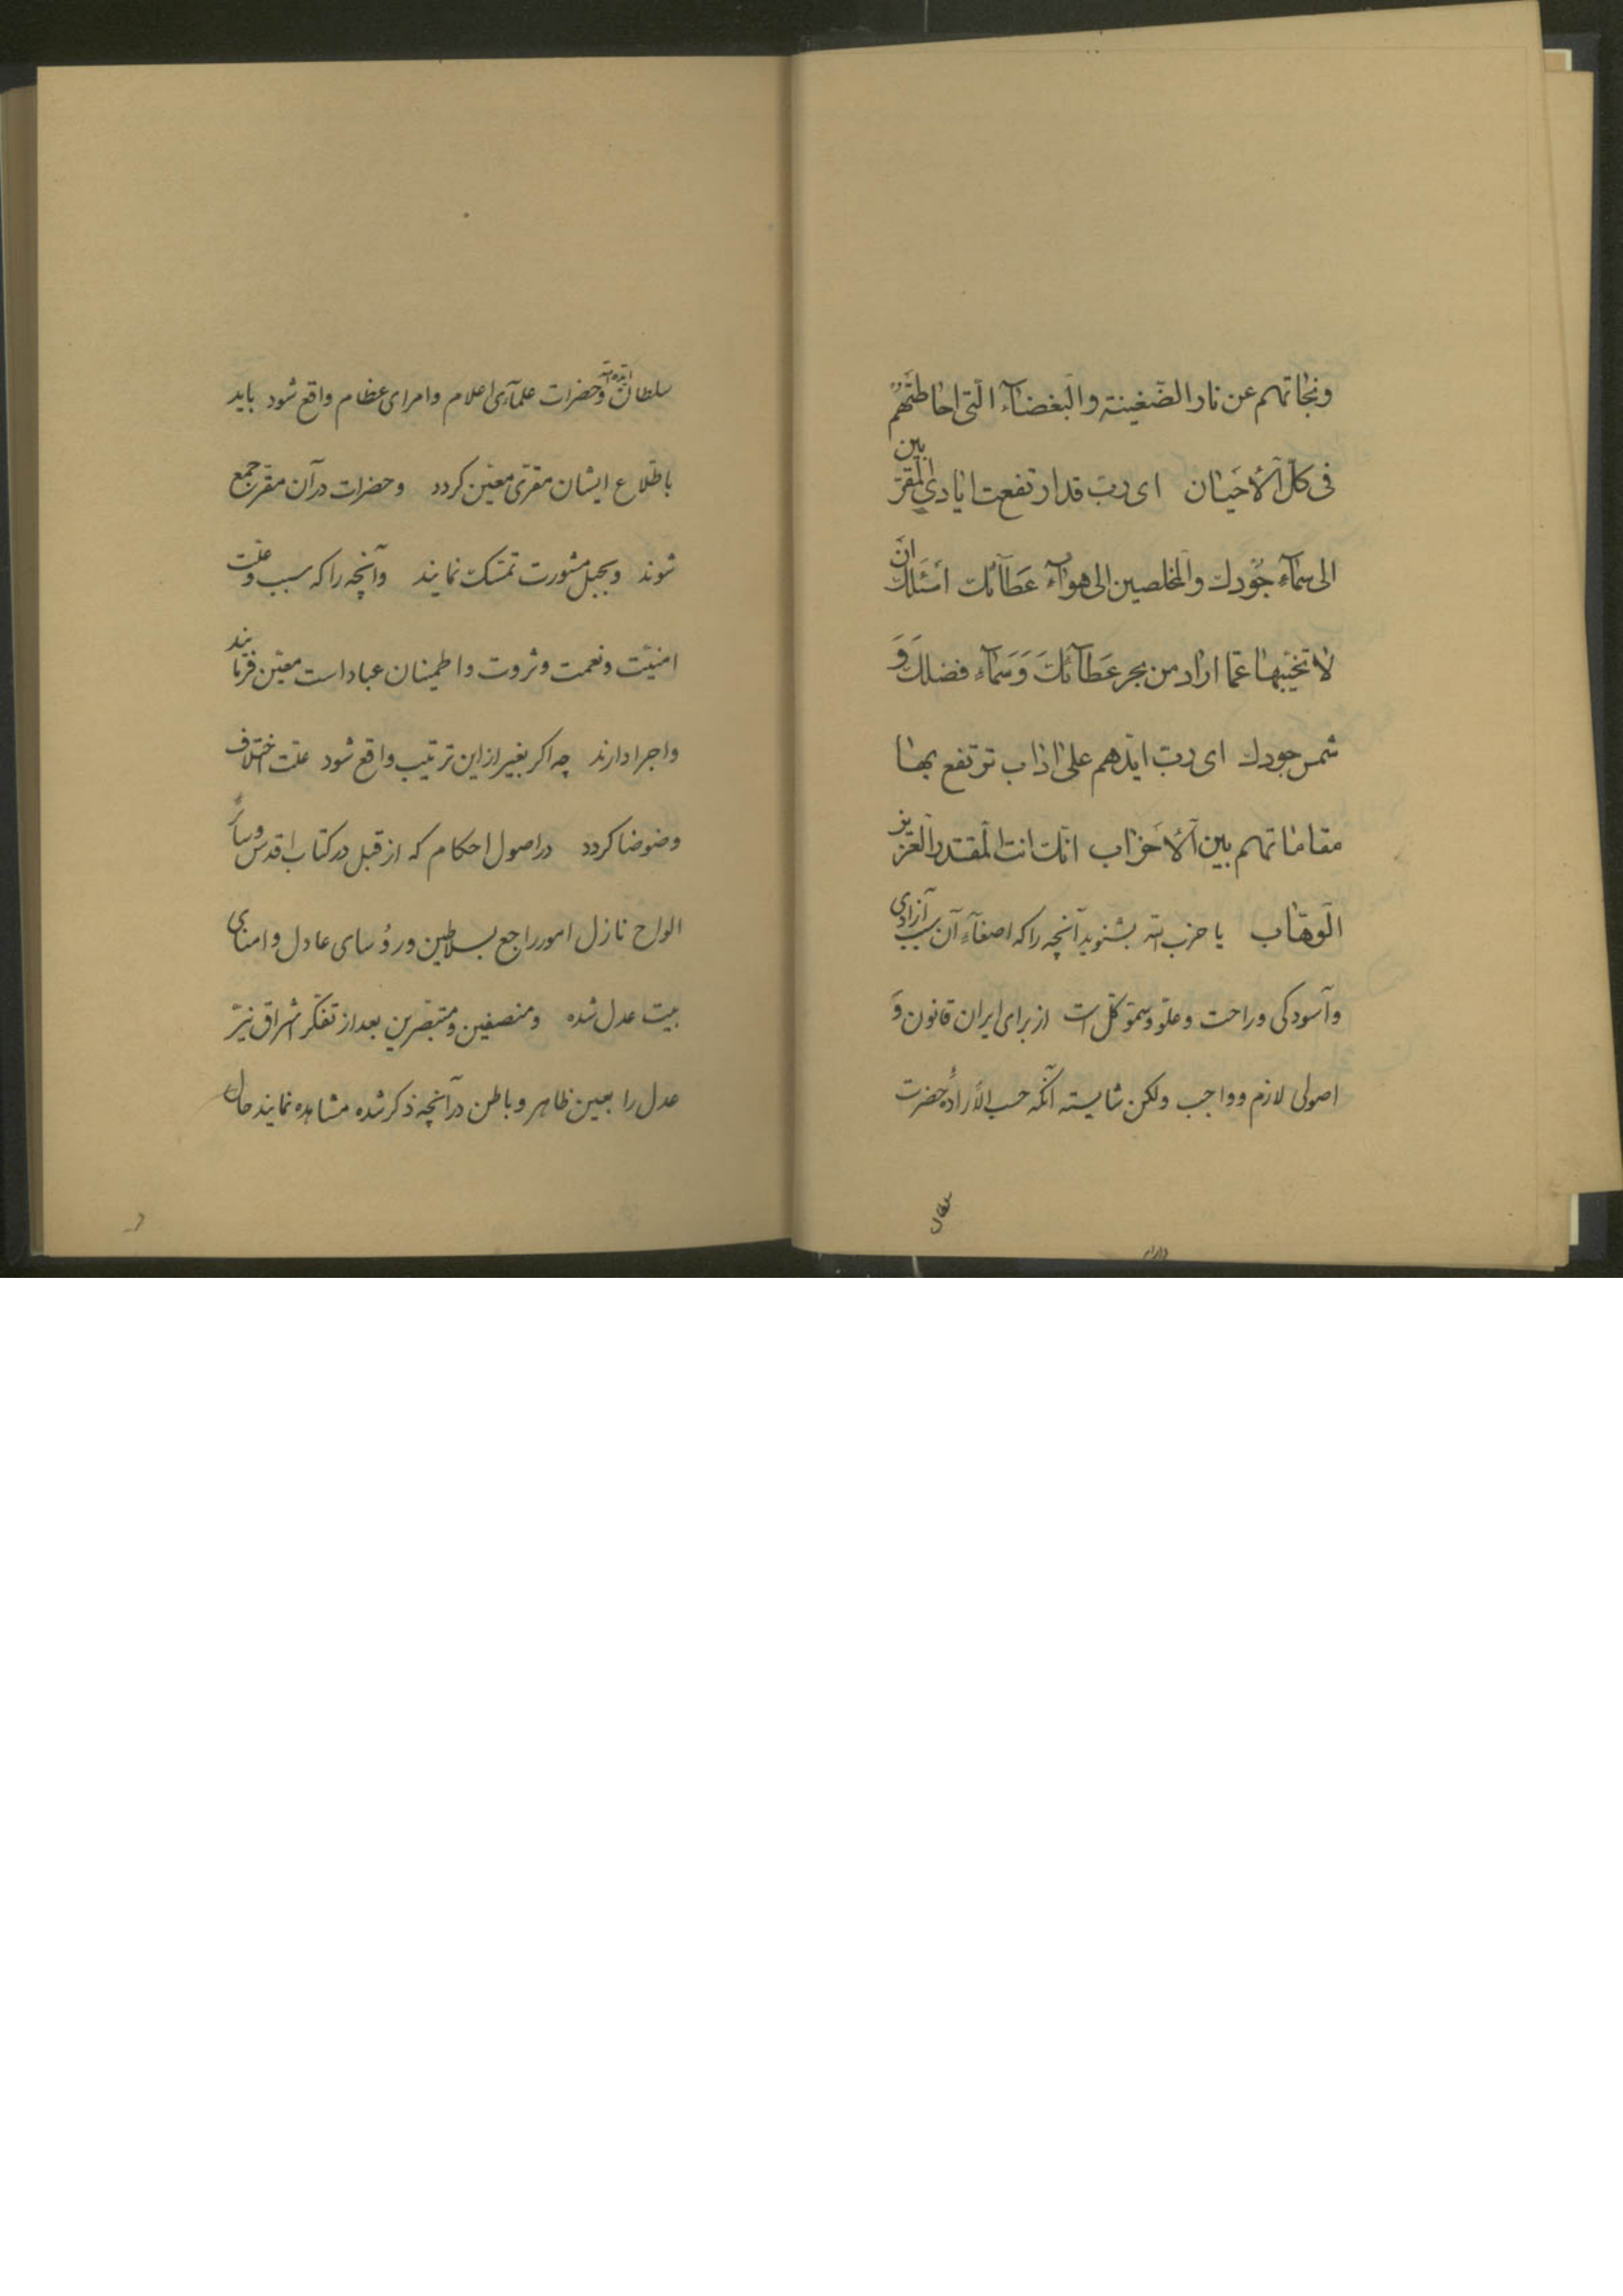 ونجاتهم عن نار الضّغینة والبغضآء الّتی احاطتهم
فی کلّ الأحیان ای ربّ قد ارتفعت ایادي المقرّبین
الی سمآء جُودك والمخلصین الی هوآء عَطآئك اسئلك ان
لا تخیّبها عمّا اراد من بحر عَطآئكَ وَ سَمآء فضلك وَ
شمس جودك ای ربّ ایّدهم علی اداب ترتفع بها
مقاماتهم بین الأحزاب انّك انت المقتدر العزیز
الوهّاب یا حزب اللّه بشنوید آنچه را که اصغآء آن سبب آزادی
و آسودکی و راحت و علوّ و سموّ کلّ است از برای ایران قانون وَ
اصولی لازم و واجب ولکن شایسته آنکه حسب الأراده حضرت
سلطان
سلطان ایّده اللّه و حضرات علمآی اعلام و امرای عظام واقع شود باید
باطّلاع ایشان مقرّی معیّن کردد و حضرات در آن مقرّ جمع
شوند و بحبل مشورت تمسّک نمایند و آنچه را که سبب و علّت
امنیّت و نعمت و ثروت و اطمینان عباد است معیّن فرمایند
و اجرا دارند چه اکر بغیر از این ترتیب واقع شود علّت اختلاف
و ضوضا کردد در اصول احکام که از قبل در کتاب اقدس و سائر
الواح نازل امور راجع بسلاطین و رؤسای عادل و امنای
بیت عدل شده و منصفین و متبصّرین بعد از تفکّر اشراق نیّر
عدل را بعین ظاهر و باطن در آنچه ذکر شده مشاهده نمایند حال